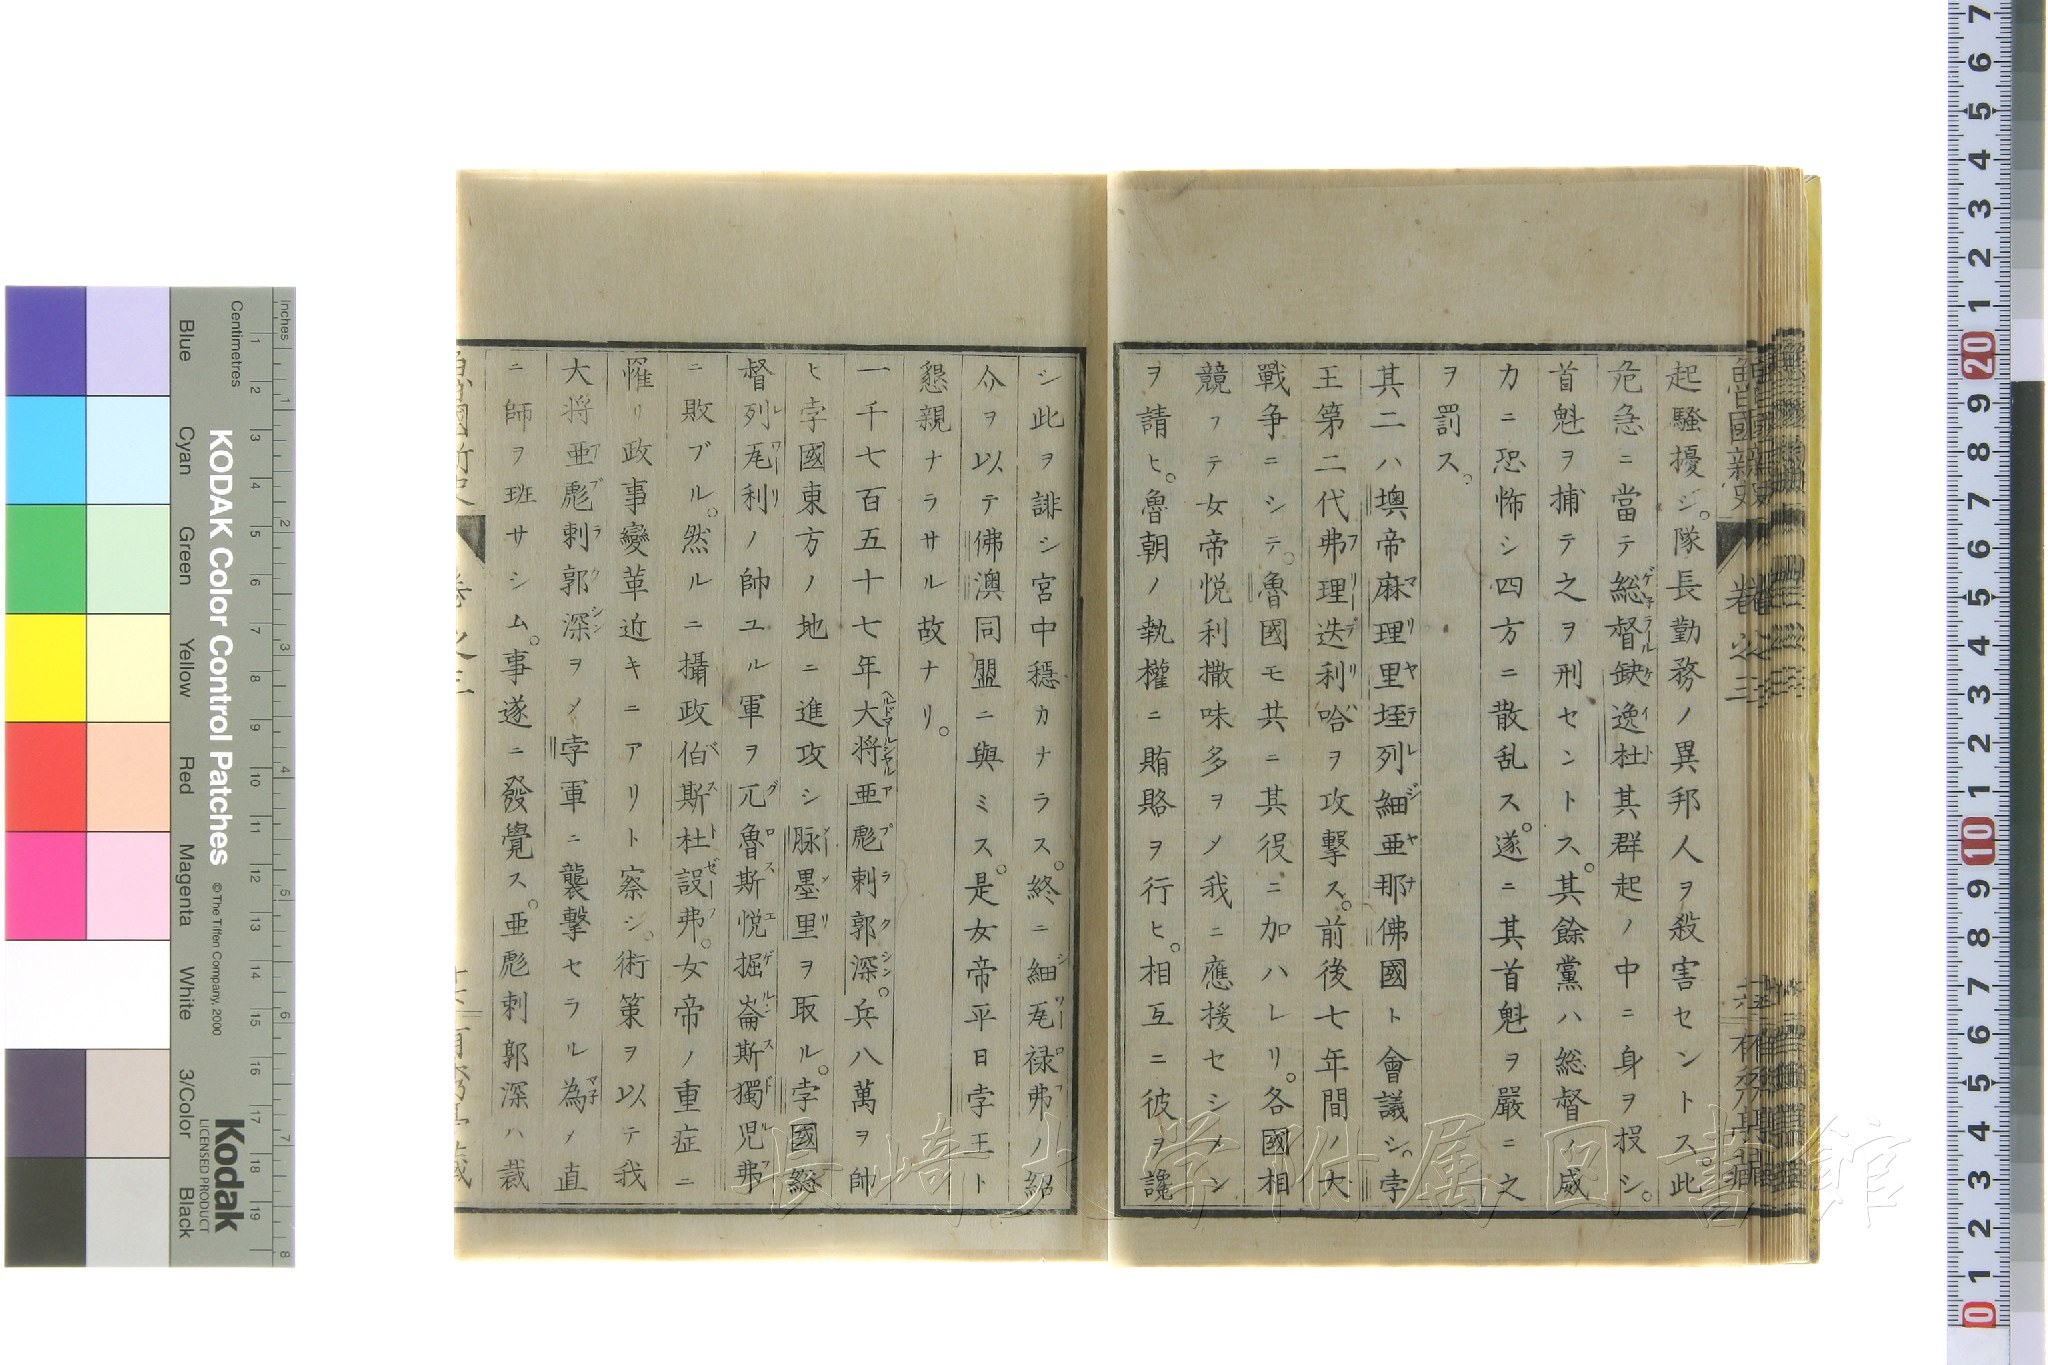 起騷擾シ。隊長勤務ノ異邦人ヲ殺害セントス此
危急ニ當テ総督缺逸杜其群起ノ中ニ身ヲ投シ。
首魁ヲ捕テ之ヲ刑セントス。其餘黨ハ総督ノ威
力ニ恐怖シ四方ニ散乱ス。遂ニ其首魁ヲ嚴ニ之
ヲ罰ス。
其二ハ墺帝麻理里垤列細亜那佛國ト會議シ。孛
王第二代弗理迭利哈ヲ攻撃ス。前後七年間ノ大
戰争ニシテ。魯國モ共ニ其役ニ加ハレリ。各國相
競フテ女帝悦利撒味多ヲメ我ニ應援セシメン
ヲ請ヒ。魯朝ノ執權ニ賄賂ヲ行ヒ。相互ニ彼ヲ讒
シ此ヲ誹シ宮中穏カナラス。終ニ細寉禄弗ノ紹
介ヲ以テ佛澳同盟ニ與ミス。是女帝平日孛王ト
懇親ナラサル故ナリ。
一千七百五十七年大将亜彪剌郭深。兵八萬ヲ帥
ヒ孛國東方ノ地ニ進攻シ脉墨里ヲ取ル。孛國総
督列寉利ノ帥ユル軍ヲ兀魯斯悦掘崙斯獨児弗
ニ敗ブル。然ルニ攝政伯斯杜設弗。女帝ノ重症ニ
罹リ政事變革近キニアリト察シ。術策ヲ以テ我
大将亜彪剌郭深ヲメ孛軍ニ襲撃セラル為メ直
ニ師ヲ班サシム。事遂ニ發覺ス。亜彪剌郭深ハ裁
魯國新史 卷之三
長崎大学附属図書館
KODAK Color Control Patches
© The Tiffen Company, 2000
Kodak
LICENSED PRODUCT
Centimetres
Inches
Blue
Cyan
Green
Yellow
Red
Magenta
White
3/Color
Black